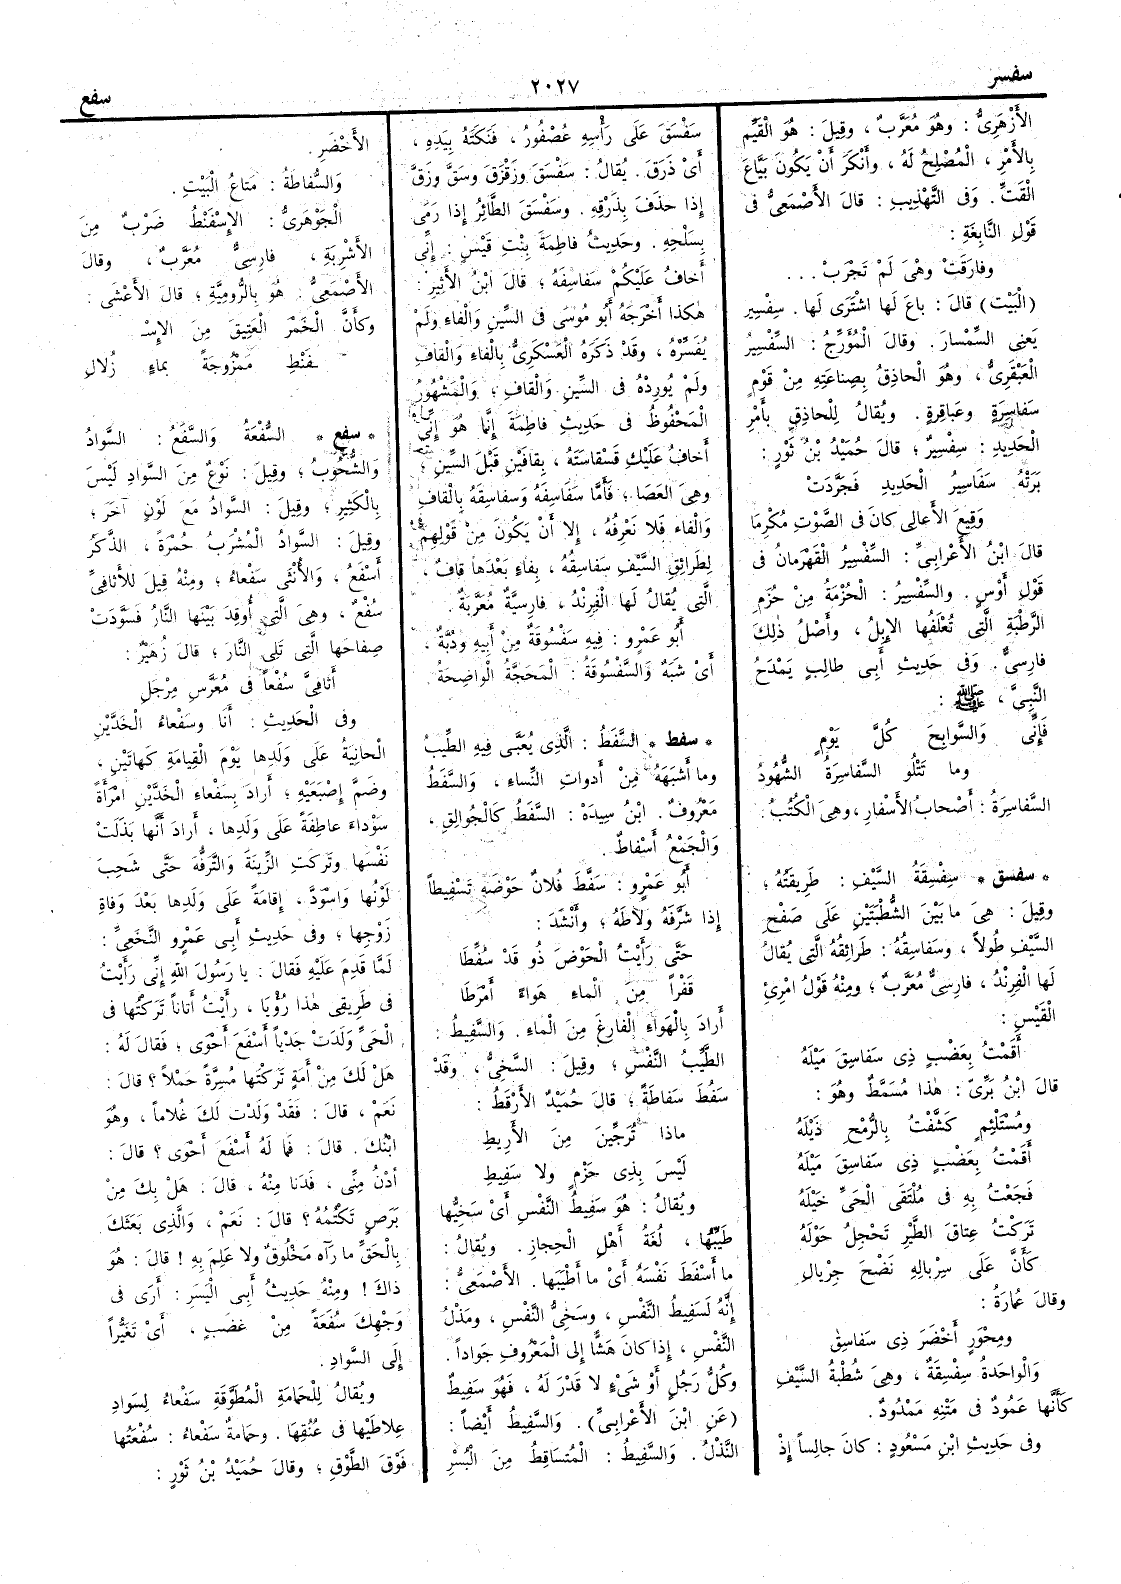 سفسر
٢٠٢٧
سفع
الأَزْهَرِىُّ : وهُوَ مُعَرَّبٌ ، وقِيلَ : هُوَ الْقَيِّمُ
بِالأَمْرِ ، الْمُصْلِحُ لَهُ ، وأَنْكَرَ أَنْ يَكُونَ بَيَّاعَ
الْقَتِّ . وَفى التَّهْذِيبِ : قالَ الأَصْمَعِىُّ فى
قَوْلِ النَّابِغَةِ :
وفارَقَتْ وهْىَ لَمْ تَجْرَبْ . . .
(الْبَيْت) قالَ : باعَ لَها اشْتَرَى لَها . سِفْسِير
يَعْنِى السِّمْسارَ . وقالَ الْمُؤَرِّجُ : السِّفْسِيرُ
الْعَبْقَرِىُّ ، وهُوَ الْحاذِقُ بِصِناعَتِهِ مِنْ قَوْمٍ
سَفاسِرَةٍ وعَباقِرةٍ . ويُقالُ لِلْحاذِقِ بِأَمْرِ
الْحَدِيدِ : سِفْسِيرٌ ؛ قالَ حُمَيْدُ بْنُ ثَوْرٍ :
بَرَتْهُ سَفَاسِيرُ الْحَدِيدِ فَجَرَّدَتْ
وَقِيعَ الأَعالِى كانَ فى الصَّوْتِ مُكْرِمَا
قالَ ابْنُ الأَعْرابِىِّ : السِّفْسِيرُ الْقَهْرَمانُ فى
قَوْلِ أَوْسٍ . والسِّفْسِيرُ : الْحُزْمَةُ مِنْ حُزَمِ
الرَّطْبَةِ الَّتِى تُعْلَفُها الإِبِلُ ، وأَصْلُ ذٰلِكَ
فارِسىٌّ . وَفى حَدِيثِ أَبِى طالِبٍ يَمْدَحُ
النَّبِىَّ ، ﷺ :
فَإِنِّى وَالسَّوابِحَ كُلَّ يَوْمٍ
وما تَتْلُو السَّفاسِرَةُ الشُّهُودُ
السَّفاسِرَةُ : أَصْحابُ الأَسْفارِ ، وهِىَ الْكُتُبُ .
* سفسق * سِفْسِقَةُ السَّيْفِ : طَرِيقَتُهُ ؛
وقِيلَ : هِىَ ما بَيْنَ الشُّطْبَتَيْنِ عَلَى صَفْحِ
السَّيْفِ طُولاً ، وسَفاسِقُهُ : طَرائِقُهُ الَّتِى يُقالُ
لَها الْفِرِنْدُ ، فارِسىٌّ مُعَرَّبٌ ؛ ومِنْهُ قَوْلُ امْرِئِ
الْقَيْسِ :
أَقَمْتُ بِعَضْبٍ ذِى سَفاسِقَ مَيْلَهُ
قالَ ابْنُ بَرِّىّ : هٰذا مُسَمَّطٌ وهُوَ :
ومُسْتَلْئِمٍ كَشَّفْتُ بِالرُّمْحِ ذَيْلَهُ
أَقَمْتُ بِعَضْبٍ ذِى سَفاسِقَ مَيْلَهُ
فَجَعْتُ بِهِ فى مُلْتَقَى الْحَىِّ خَيْلَهُ
تَرَكْتُ عِتاقَ الطَّيْرِ تَحْجِلُ حَوْلَهُ
كَأَنَّ عَلَى سِرْبالِهِ نَضْحَ جِرْيالِ
وقالَ عُمارَةُ :
ومِحْوَرٍ أَخْضَرَ ذِى سَفاسِقِ
وَالْواحِدَةُ سِفْسِقَةٌ ، وهِىَ شُطْبَةُ السَّيْفِ
كَأَنَّها عَمُودٌ فى مَتْنِهِ مَمْدُودٌ .
وفى حَدِيثِ ابْنِ مَسْعُودٍ : كانَ جالِساً إِذْ
سَفْسَقَ عَلَى رَأْسِهِ عُصْفُورٌ ، فَنَكَتَهُ بِيَدِهِ ،
أَىْ ذَرَقَ . يُقالُ : سَفْسَقَ وَزَقْزَقَ وسَقَّ وزَقَّ
إِذا حذَفَ بِذَرْقِهِ . وسَفْسَقَ الطَّائِرُ إِذا رَمَى
بِسَلْحِهِ . وحَدِيثُ فاطِمَةَ بِنْتِ قَيْسٍ : إِنِّى
أَخافُ عَلَيْكُمْ سَفاسِفَهُ ؛ قالَ ابْنُ الأَثِيرِ :
هٰكذا أَخْرَجَهُ أَبُو مُوسَى فى السِّينِ وَالْفاءِ ولَمْ
يُفَسِّرْهُ ، وقَدْ ذَكَرَهُ الْعَسْكَرِىُّ بِالْفاءِ وَالْقافِ
ولَمْ يُورِدْهُ فى السِّينِ وَالْقافِ ؛ وَالْمَشْهُورُ
الْمَحْفُوظُ فى حَدِيثِ فاطِمَةَ إِنَّما هُوَ إِنِّى
أَخافُ عَلَيْكِ قَسْقاسَتَهُ ، بِقافَيْنِ قَبْلَ السِّينَيْنِ ؛
وهِىَ الْعَصَا ؛ فَأَمَّا سَفَاسِفَهُ وَسَفاسِقَهُ بِالْقافِ
وَالْفاء فَلا نَعْرِفُهُ ، إِلا أَنْ يَكُونَ مِنْ قَوْلِهِمْ
لِطَرائِقِ السَّيْفِ سَفاسِقُهُ ، بِفاءٍ بَعْدَها قافٌ ،
الَّتِى يُقالُ لَها الْفِرِنْدُ ، فارِسِيَّةٌ مُعَرَّبَةٌ .
أَبُو عَمْرٍو : فِيهِ سَفْسُوقَةٌ مِنْ أَبِيهِ ودُبَّةٌ ،
أَىْ شَبَهٌ وَالسَّفْسُوقَةُ : الْمَحَجَّةُ الْواضِحَةُ .
* سفط * السَّفَطُ : الَّذِى يُعَبَّى فِيهِ الطِّيبُ
وما أَشْبَهَهُ مِنْ أَدواتِ النِّساءِ ، وَالسَّفَطُ
مَعْرُوفٌ . ابْنُ سِيدَهْ : السَّفَطُ كَالْجُوالِقِ ،
وَالْجَمْعُ أَسْفاطٌ .
أَبُو عَمْرٍو : سَفَّطَ فُلانٌ حَوْضَهُ تَسْفِيطاً
إِذا شَرَّفَهُ ولاَطَهُ ؛ وأَنْشَدَ :
حَتَّى رَأَيْتُ الْحَوْضَ ذُو قَدْ سُفِّطَا
قَفْراً مِنَ الْماءِ هَواءً أَمْرَطَا
أَرادَ بِالْهَواءِ الْفارِغَ مِنَ الْماءِ . وَالسَّفِيطُ :
الطَّيِّبُ النَّفْسِ ؛ وقِيلَ : السَّخِىُّ ، وقَدْ
سَفُطَ سَفاطَةً ؛ قالَ حُمَيْدٌ الأَرْقَطُ :
ماذا تُرَجِّينَ مِنَ الأَرِيطِ
لَيْسَ بِذِى حَزْمٍ ولا سَفِيطِ
ويُقالُ : هُوَ سَفِيطُ النَّفْسِ أَىْ سَخِيُّها
طَيِّبُها ، لُغَةُ أَهْلِ الْحِجازِ . ويُقالُ :
ما أَسْفَطَ نَفْسَهُ أَىْ ما أَطْيَبَها . الأَصْمَعِىُّ :
إِنَّهُ لَسَفِيطُ النَّفْسِ ، وسَخِىُّ النَّفْسِ ، ومَذْلُ
النَّفْسِ ، إِذا كانَ هَشًّا إِلى الْمَعْرُوفِ جَواداً .
وكُلُّ رَجُلٍ أَوْ شَىْءٍ لا قَدْرَ لَهُ ، فَهُوَ سَفِيطٌ
(عَنِ ابْنِ الأَعْرابِىِّ) . وَالسَّفِيطُ أَيْضاً :
النَّذْلُ . وَالسَّفِيطُ : الْمُتَساقِطُ مِنَ الْبُسْرِ
الأَخْضَرِ .
وَالسُّفاطَةُ : مَتاعُ الْبَيْتِ .
الْجَوْهَرِىُّ : الإِسْفَنْطُ ضَرْبٌ مِنَ
الأَشْرِبَةِ ، فارِسِىٌّ مُعَرَّبٌ ، وقالَ
الأَصْمَعِىُّ : هُوَ بِالرُّومِيَّةِ ؛ قالَ الأَعْشَى :
وكأَنَّ الْخَمْرَ الْعَتِيقَ مِنَ الإِسْـ
ـفَنْطِ مَمْزُوجَةً بماءٍ زُلالِ
* سفع * السُّفْعَةُ وَالسَّفَعُ : السَّوادُ
وَالشُّحُوبُ ؛ وقِيلَ : نَوْعٌ مِنَ السَّوادِ لَيْسَ
بِالْكَثِيرِ ؛ وقِيلَ : السَّوادُ مَعَ لَوْنٍ آخَرَ ؛
وقِيلَ : السَّوادُ الْمُشْرَبُ حُمْرَةً ، الذَّكَرُ
أَسْفَعُ ، وَالأُنْثَى سَفْعاءُ ؛ ومِنْهُ قِيلَ لِلأَثافِىِّ
سُفْعٌ ، وهِىَ الَّتِى أُوقِدَ بَيْنَها النَّارُ فَسَوَّدَتْ
صِفاحَها الَّتِى تَلِى النَّارَ ؛ قالَ زُهَيْرٌ :
أَثافِىَّ سُفْعاً فى مُعَرَّسِ مِرْجَلِ
وفى الْحَدِيثِ : أَنَا وسَفْعاءُ الْخَدَّيْنِ
الْحانِيَةُ عَلَى وَلَدِها يَوْمَ الْقِيامَةِ كَهاتَيْنِ ،
وضَمَّ إِصْبَعَيْهِ ؛ أَرادَ بِسَفْعاءِ الْخَدَّيْنِ امْرَأَةً
سَوْداءَ عاطِفَةً عَلَى وَلَدِها ، أَرادَ أَنَّها بَذَلَتْ
نَفْسَها وتَرَكَتِ الزِّينَةَ وَالتَّرَفُّهَ حَتَّى شَحِبَ
لَوْنُها وَاسْوَدَّ ، إِقامَةً عَلَى وَلَدِها بَعْدَ وَفاةِ
زَوْجِها ؛ وفى حَدِيثِ أَبِى عَمْرٍو النَّخَعِىِّ :
لَمَّا قَدِمَ عَلَيْهِ فَقالَ : يا رَسُولَ اللهِ إِنِّى رَأَيْتُ
فى طَرِيقِى هٰذا رُؤْيا ، رأَيْتُ أَتاناً تَرَكْتُها فى
الْحَىِّ وَلَدَتْ جَدْياً أَسْفَعَ أَحْوَى ؛ فَقالَ لَهُ :
هَلْ لَكَ مِنْ أَمَةٍ تَرَكْتَها مُسِرَّةً حَمْلاً ؟ قالَ :
نَعَمْ ، قالَ : فَقَدْ وَلَدَتْ لَكَ غُلاماً ، وهُوَ
ابْنُكَ . قالَ : فَما لَهُ أَسْفَعَ أَحْوَى ؟ قالَ :
ادْنُ مِنِّى ، فَدَنا مِنْهُ ، قالَ : هَلْ بِكَ مِنْ
بَرَصٍ تَكْتُمُهُ ؟ قالَ : نَعَمْ ، وَالَّذِى بَعَثَكَ
بِالْحَقِّ ما رَآه مَخْلُوقٌ ولا عَلِمَ بِهِ ! قالَ : هُوَ
ذاكَ ! ومِنْهُ حَدِيثُ أَبِى الْيَسَرِ : أَرَى فى
وَجْهِكَ سُفْعَةً مِنْ غضَبٍ ، أَىْ تَغَيُّراً
إِلَى السَّوادِ .
ويُقالُ لِلْحَمامَةِ الْمُطَوَّقَةِ سَفْعاءُ لِسَوادِ
عِلاطَيْها فى عُنُقِها . وحَمامَةٌ سَفْعاءُ : سُفْعَتُها
فَوْقَ الطَّوْقِ ؛ وقالَ حُمَيْدُ بْنُ ثَوْرٍ :